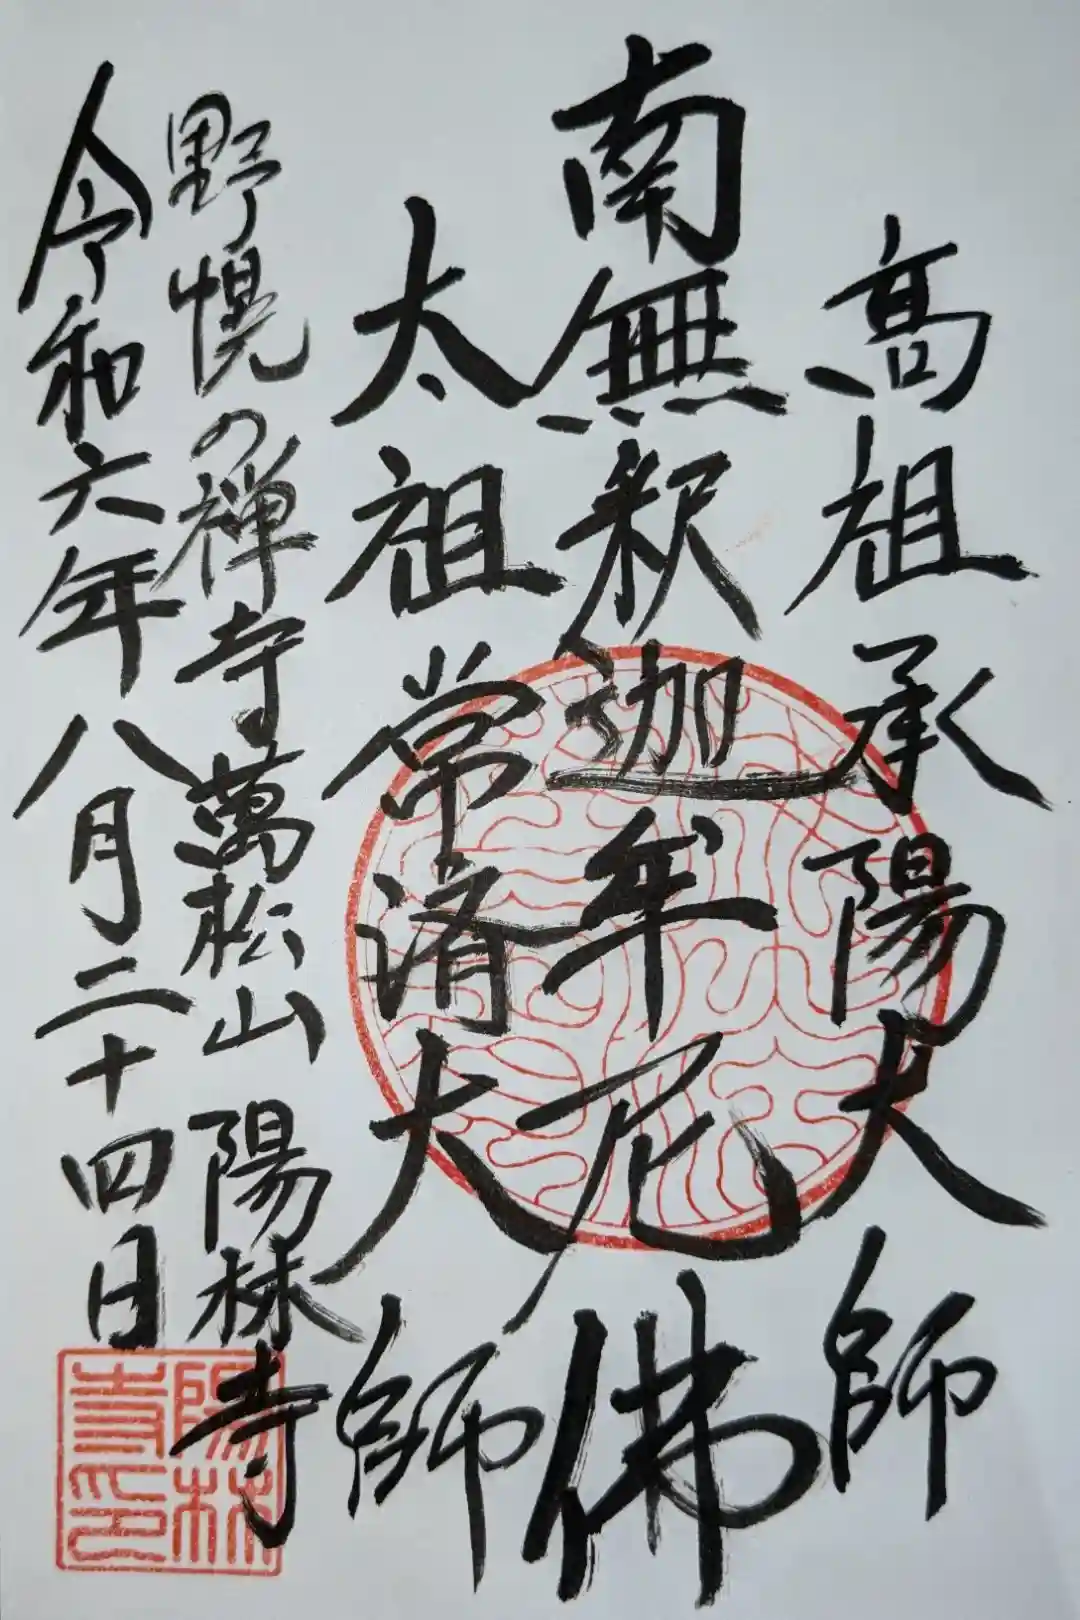 高祖承陽大師
南無釈迦牟尼佛
太祖常済大師
野幌の禅寺萬松山陽林寺
令和六年八月二十四日
陽林
寺印